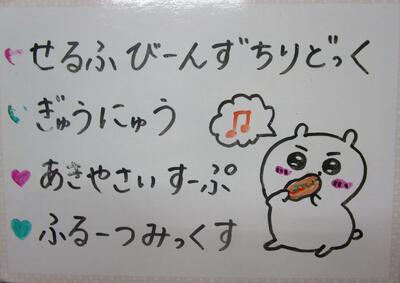 せるふ びーんずちりどっく
ぎゅうにゅう
あきやさいすーぷ
ふるーつみっくす